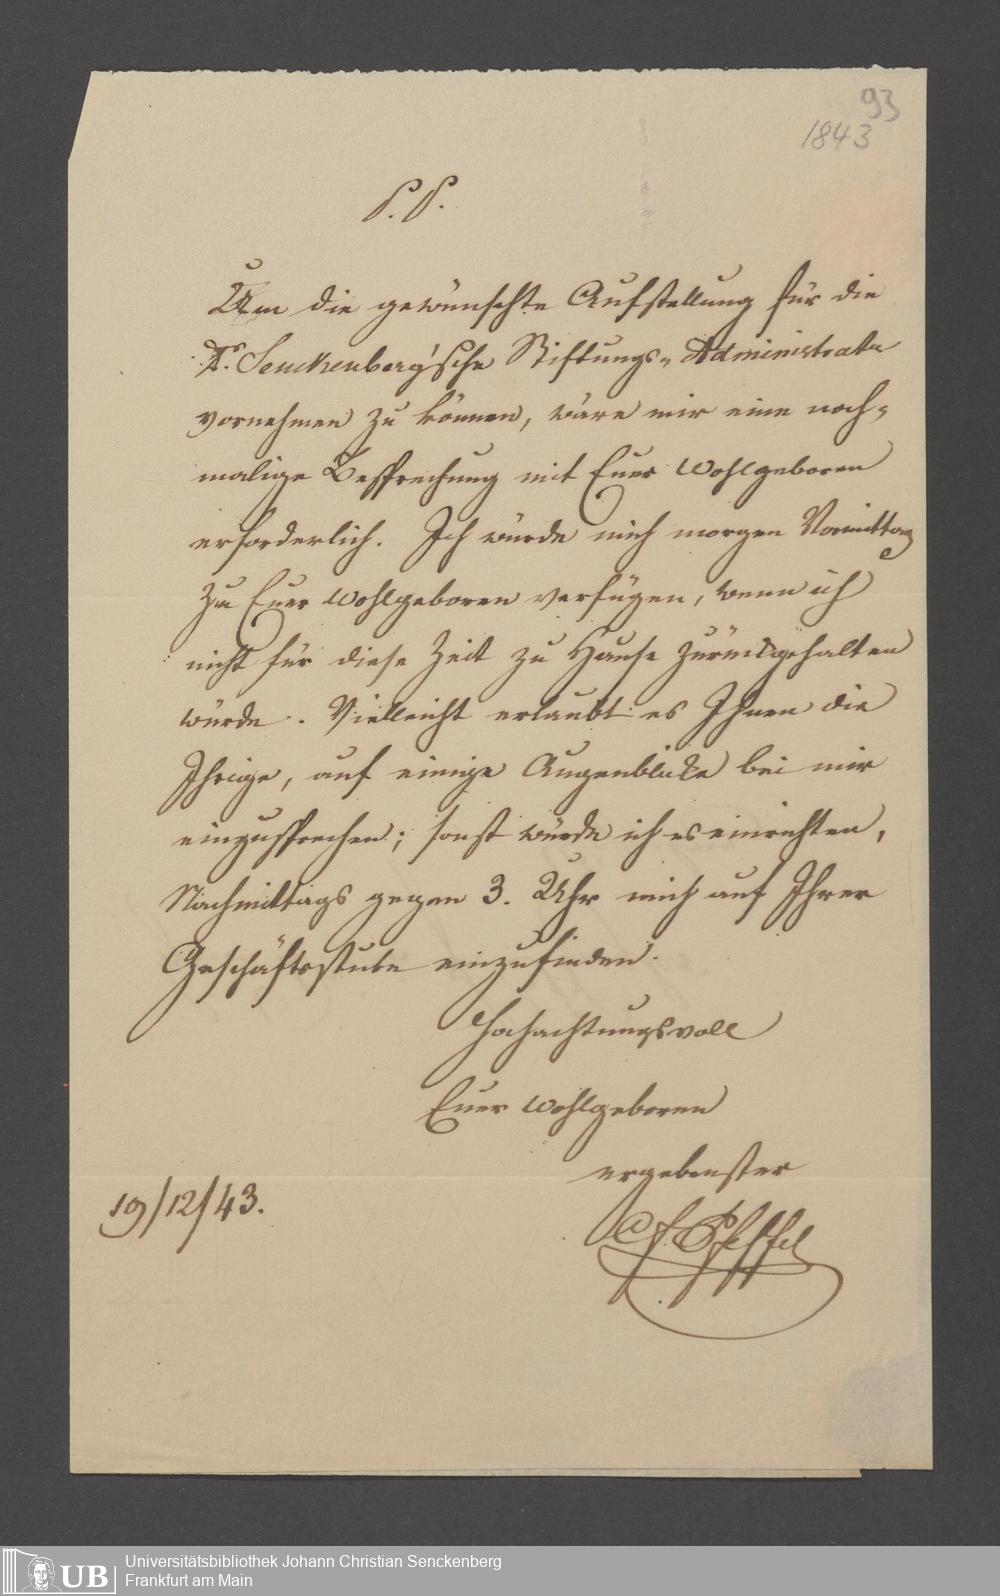 93
1843
P. P.
Um die gewünschte Aufstellung für die
Dr. Senckenberg'sche Stiftungs-Administration
vornehmen zu können, wäre mir eine noch-
malige Besprechung mit Euer Wohlgeboren
erforderlich. Ich würde mich morgen Vormittag
zu Euer Wohlgeboren verfügen, wenn ich
nicht für diese Zeit zu Hause zurückgehalten
würde. Vielleicht erlaubt es Ihnen die
Ihrige, auf einige Augenblicke bei mir
einzusprechen; sonst würde ich es einrichten,
Nachmittags gegen 3. Uhr mich auf Ihrer
Geschäftsstube einzufinden.
Hochachtungsvoll
Euer Wohlgeboren
ergebenster
19/12/43.
C F. Pfeffel
UB
Universitätsbibliothek Johann Christian Senckenberg
Frankfurt am Main